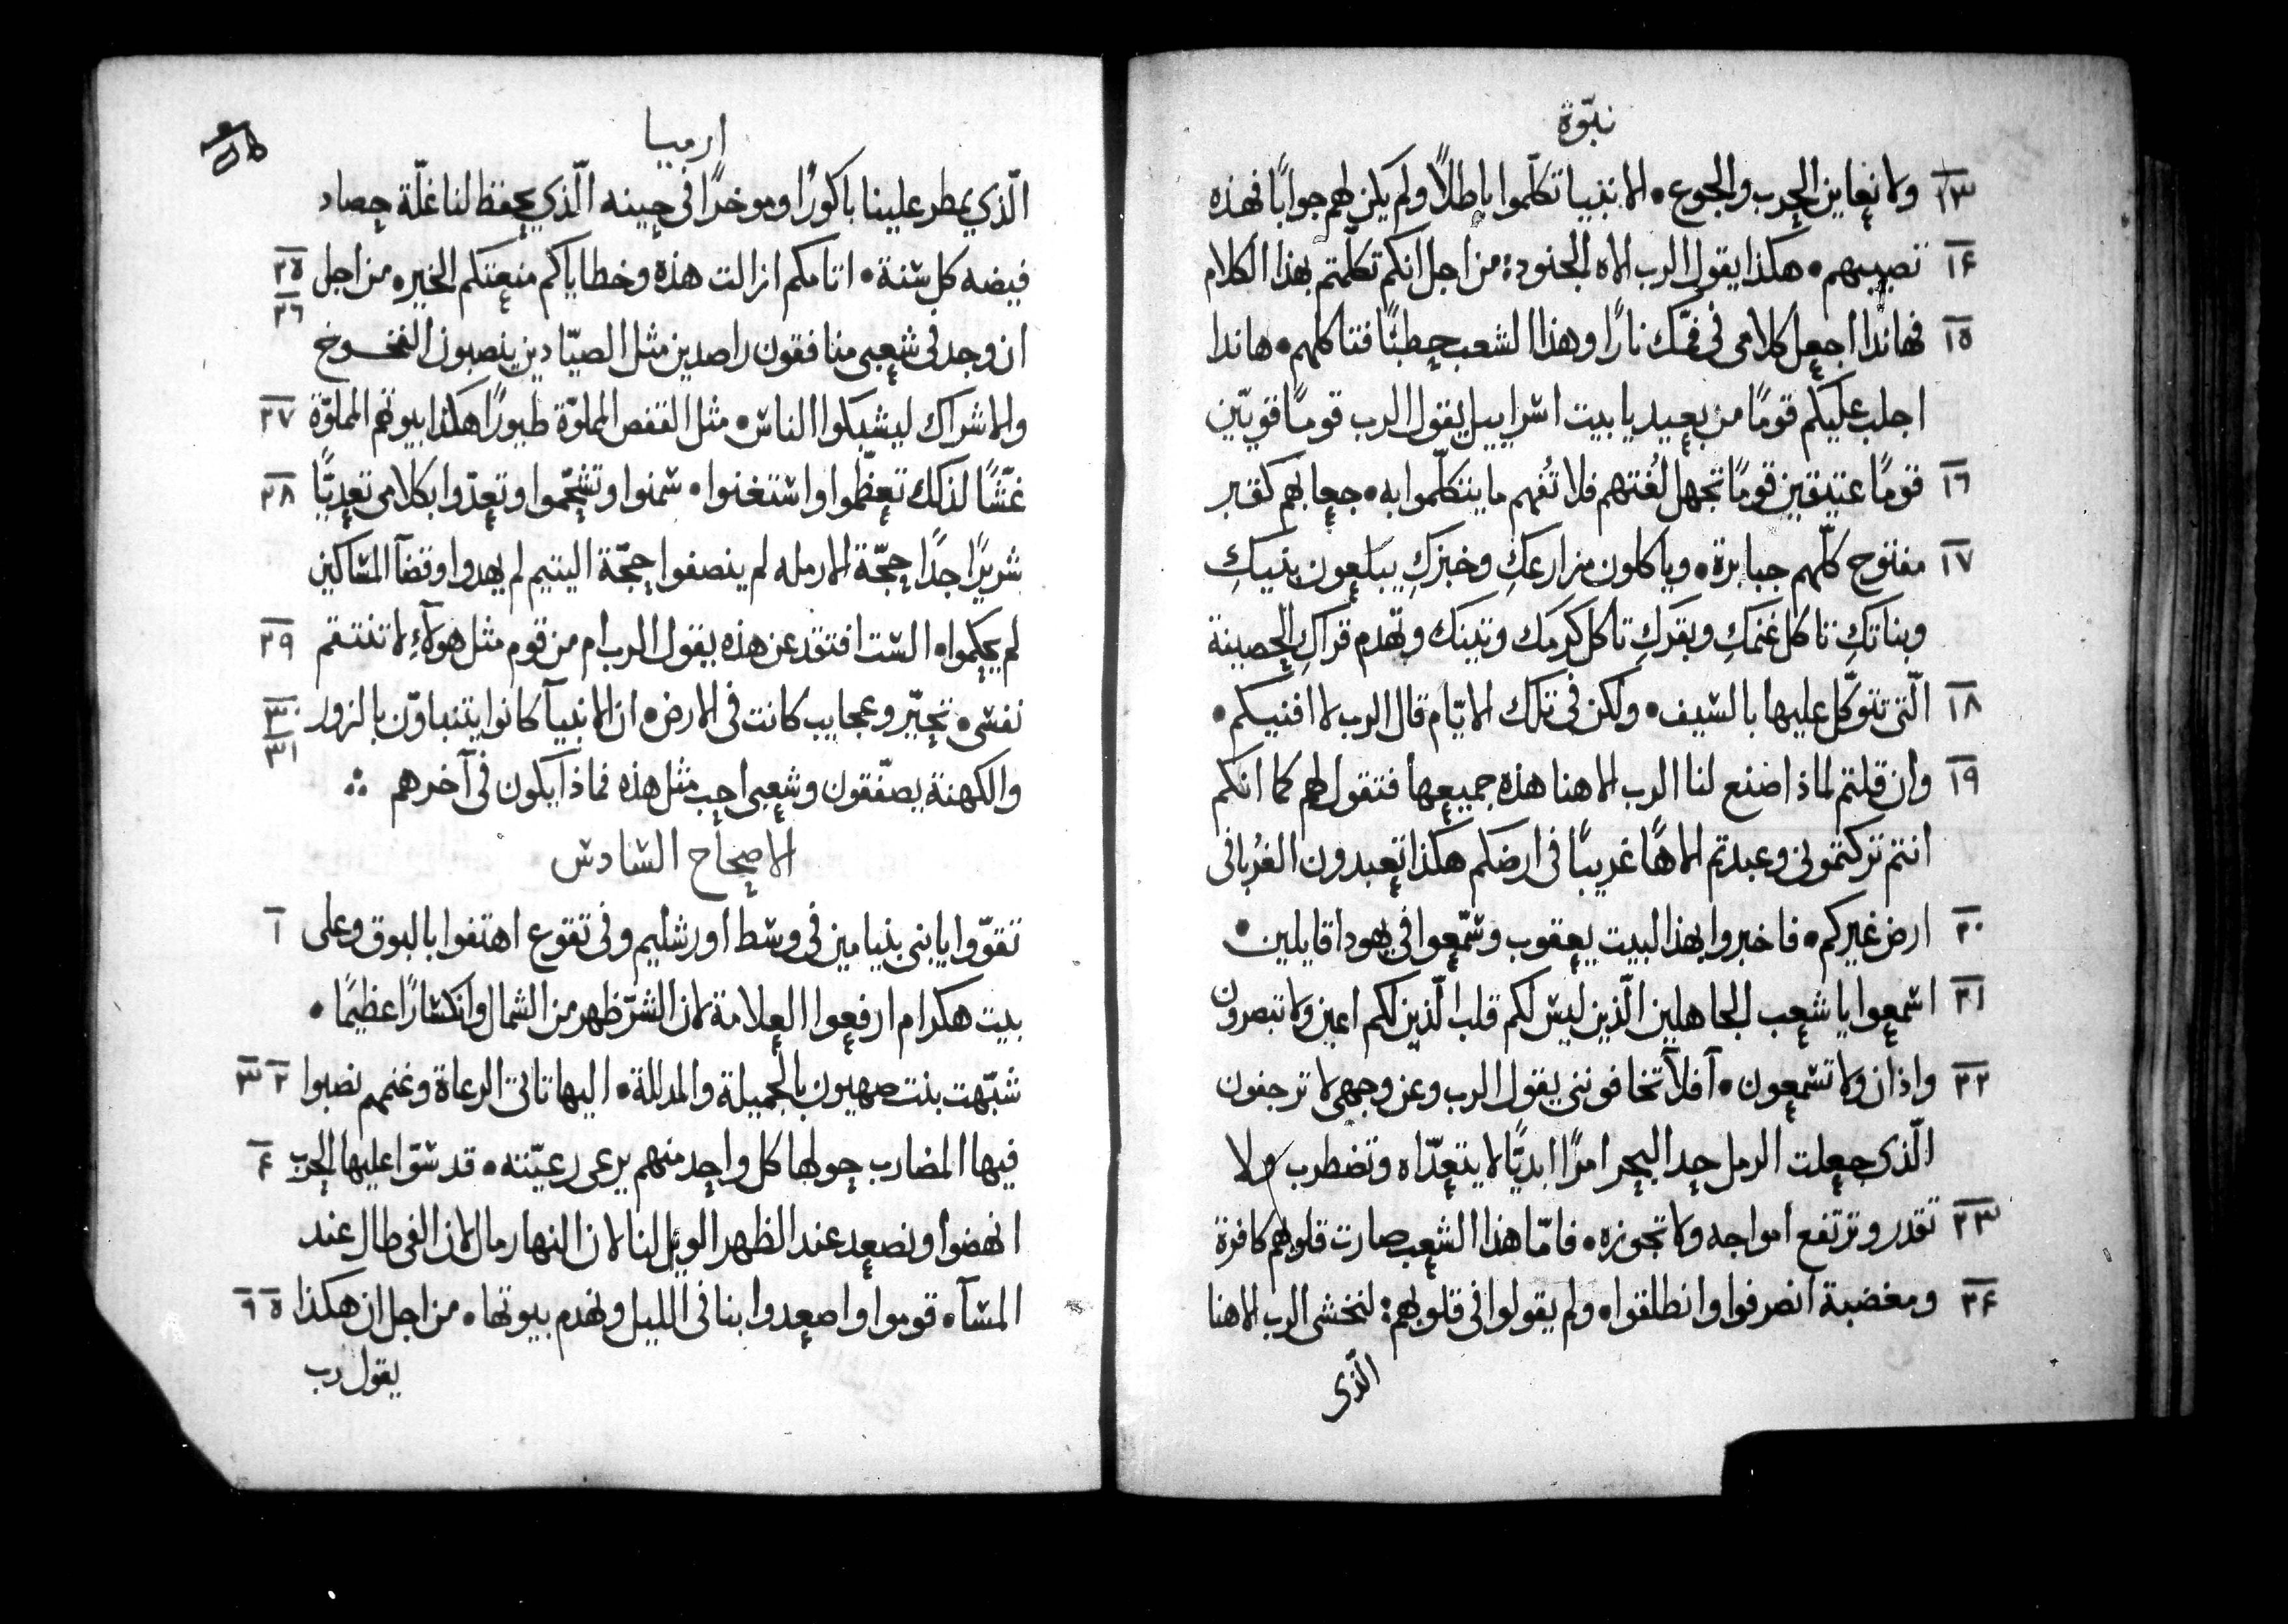 نبوّة
١٣ ولا نعاين الحرب والجوع • الانبيا تكلّموا باطلاً ولم يكن لهم جوابًا فهذه
١٤ تصيبهم • هكذا يقول الرب الاه الجنود: من اجل انكم تكلّمتم بهذا الكلام
١٥ فهاندا اجعل كلامى فى فمّك نارًا وهذا الشعب حطبًا فتاكلهم • هاندا
اجلب عليكم قومًا من بعيد يا بيت اسراييل يقول الرب قومًا قويّين
١٦ قومًا عتيقين قومًا تجهل لُغتهم فلا تُفهم ما يتكلّموا به • جعابهم كقبر
١٧ مفتوح كلّهم جبابرة • وياكلون مزارعكِ وخبزكِ يبلعون بنيكِ
وبناتكِ تاكل غنمكِ وبقركِ تاكل كرمك وتينك وتهدم قراكِ الحصينة
١٨ الّتى تتوكّل عليها بالسيف • ولكن فى تلك الايّام قال الرب لا افنيكم •
١٩ وان قلتم لماذا صنع لنا الرب الاهنا هذه جميعها فتقول لهم كما انكم
انتم تركتمونى وعبدتم الاهًا غريبًا فى ارضكم هكذا تعبدون الغربا فى
٢٠ ارض غيركم • فاخبروا بهذا لبيت يعقوب وسمّعوا فى يهودا قايلين •
٢١ اسمعوا يا شعب الجاهلين الّذين ليس لكم قلب الّذين لكم اعين ولا تبصرون
٢٢ واذان ولا تسمعون • آفلا تخافوننى يقول الرب وعن وجهى لا ترجفون
الّذى جعلت الرمل حد البحر امرًا ابديًّا لا يتعدّاه وتضطرب ولا
٢٣ تقدر وترتفع امواجه ولا تجوزه • فامّا هذا الشعب صارت قلوبهم كافرة
٢٤ ومغضبة انصرفوا وانطلقوا • ولم يقولوا فى قلوبهم: لنخشى الرب الاهنا
الّذى
ارميا
الّذي يمطر علينا باكورًا وموخرًا فى حينه الّذي يحفظ لنا غلّة حصاد
فيضه كل سنة • اثامكم ازالت هذه وخطاياكم منعتكم الخير • من اجل ٢٥ ٢٦
ان وجد فى شعبى منافقون راصدين مثل الصيّادين ينصبون الفخوخ
والاشراك ليشبكوا الناس • مثل القفص المملوّة طيورًا هكذا بيوتهم المملوّة ٢٧
غشًّا لذلك تعظّموا واستغنوا • سمنوا وتشحّموا وتعدّوا بكلامى تعديًّا ٢٨
شريرًا جدًا حجّة الارمله لم ينصفوا حجّة اليتيم لم يهدوا وقضآ المساكين
لم يحكموا • الست افتقد عن هذه يقول الرب ام من قوم مثل هولآءِ لا تنتقم ٢٩
نفسى • تحيّر وعجايب كانت فى الارض • ان الانبيآ كانوا يتنباوّن بالزور ٣٠ ٣١
والكهنة يصفّقون وشعبى احب مثل هذه فماذا يكون فى آخرهم
الاصحاح السادس
تقوّوا يا بنى بنيامين فى وسط اورشليم وفى تقوع اهتفوا بالبوق وعلى ١
بيت هكرام ارفعوا العلامة لان الشرّ ظهر من الشمال وانكسارًا عظيمًا •
شبّهت بنت صهيون بالجميلة والمدللة • اليها تاتى الرعاة وغنمهم نصبوا ٢ ٣
فيها المضارب حولها كل واحد منهم يرعى رعيّته • قدسوّا عليها الحرب ٤
انهضوا ونصعد عند الظهر الويل لنا لان النهار مال لان الفى طال عند
المسآ • قوموا واصعدوا بنا فى الليل ونهدم بيوتها • من اجل ان هكذا ٥ ٦
يقول رب